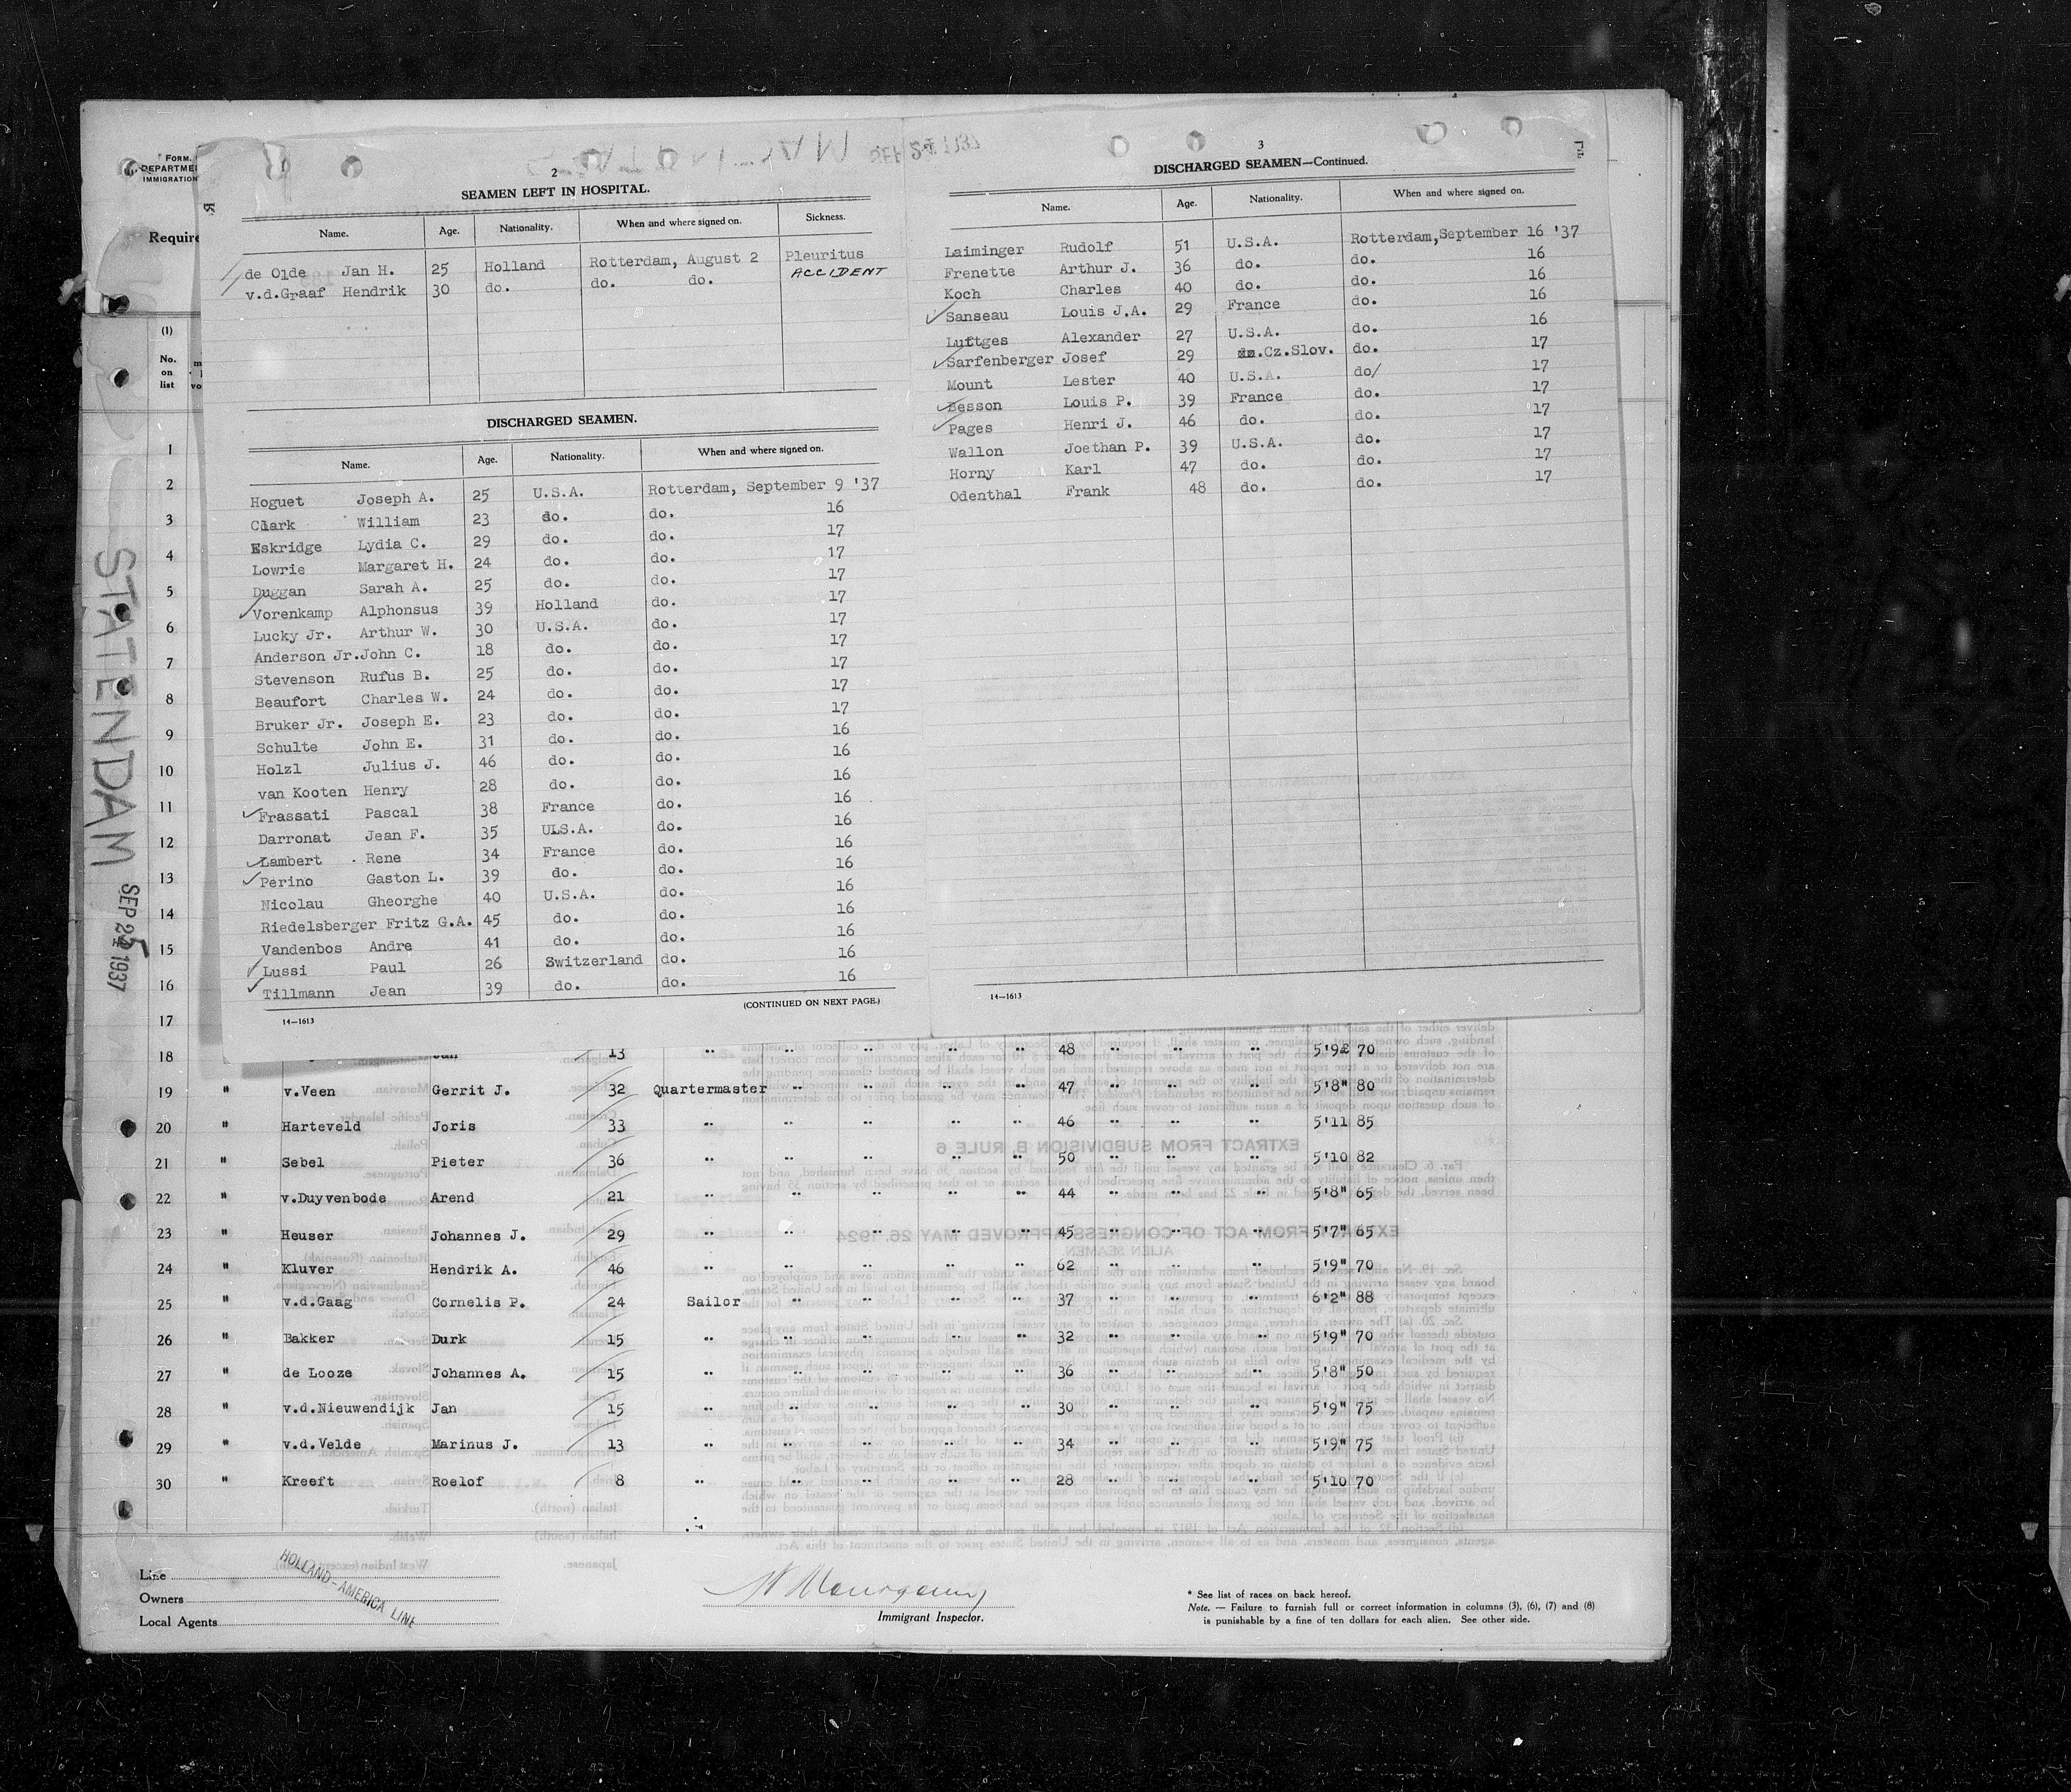 FORM.
DEPARTME
IMMIGRATION
Require
(1)
No.
on
list
2
SEAMEN LEFT IN HOSPITAL.
Name. Age. Nationality. When and where signed on. Sickness.
de Olde Jan H. 25 Holland Rotterdam, August 2 Pleuritus
v.d.Graaf Hendrik 30 do. do. do. ACCIDENT
DISCHARGED SEAMEN.
Name. Age. Nationality. When and where signed on.
Hoguet Joseph A. 25 U.S.A. Rotterdam, September 9 '37
Clark William 23 do. do. 16
Eskridge Lydia C. 29 do. do. 17
Lowrie Margaret H. 24 do. do. 17
Duggan Sarah A. 25 do. do. 17
Vorenkamp Alphonsus 39 Holland do. 17
Lucky Jr. Arthur W. 30 U.S.A. do. 17
Anderson Jr.John C. 18 do. do. 17
Stevenson Rufus B. 25 do. do. 17
Beaufort Charles W. 24 do. do. 17
Bruker Jr. Joseph E. 23 do. do. 17
Schulte John E. 31 do. do. 16
Holzl Julius J. 46 do. do. 16
van Kooten Henry 28 do. do. 16
Frassati Pascal 38 France do. 16
Darronat Jean F. 35 ULS.A. do. 16
Lambert Rene 34 France do. 16
Perino Gaston L. 39 do. do. 16
Nicolau Gheorghe 40 U.S.A. do. 16
Riedelsberger Fritz G.A. 45 do. do. 16
Vandenbos Andre 41 do. do. 16
Lussi Paul 26 Switzerland do. 16
Tillmann Jean 39 do. do. 16
(CONTINUED ON NEXT PAGE.)
14—1613
3
DISCHARGED SEAMEN—Continued.
Name. Age. Nationality. When and where signed on.
Laiminger Rudolf 51 U.S.A. Rotterdam,September 16 '37
Frenette Arthur J. 36 do. do. 16
Koch Charles 40 do. do. 16
Sanseau Louis J.A. 29 France do. 16
Luftges Alexander 27 U.S.A. do. 16
Sarfenberger Josef 29 Cz.Slov. do. 17
Mount Lester 40 U.S.A. do/ 17
Besson Louis P. 39 France do. 17
Pages Henri J. 46 do. do. 17
Wallon Joethan P. 39 U.S.A. do. 17
Horny Karl 47 do. do. 17
Odenthal Frank 48 do. do. 17
14—1613
STATENDAM
SEP 25 1937
1
2
3
4
5
6
7
8
9
10
11
12
13
14
15
16
17
18 Jan 13 " " " " " 48 " " " 5'9½ 70
19 " v.Veen Gerrit J. 32 Quartermaster " " " " 47 " " " 5'8" 80
20 " Harteveld Joris 33 " " " " " 46 " " " 5'11 85
21 " Sebel Pieter 36 " " " " " 50 " " " 5'10 82
22 " v.Duyvenbode Arend 21 " " " " " 44 " " " 5'8" 65
23 " Heuser Johannes J. 29 " " " " " 45 " " " 5'7" 65
24 " Kluver Hendrik A. 46 " " " " " 62 " " " 5'9" 70
25 " v.d.Gaag Cornelis P. 24 Sailor " " " " 37 " " " 6'2" 88
26 " Bakker Durk 15 " " " " " 32 " " " 5'9" 70
27 " de Looze Johannes A. 15 " " " " " 36 " " " 5'8" 50
28 " v.d.Nieuwendijk Jan 15 " " " " " 30 " " " 5'9" 75
29 " v.d.Velde Marinus J. 13 " " " " " 34 " " " 5'9" 75
30 " Kreeft Roelof 8 " " " " " 28 " " " 5'10 70
Line
Owners
Local Agents
HOLLAND-AMERICA LINE
Immigrant Inspector.
* See list of races on back hereof.
Note. — Failure to furnish full or correct information in columns (3), (6), (7) and (8)
is punishable by a fine of ten dollars for each alien. See other side.